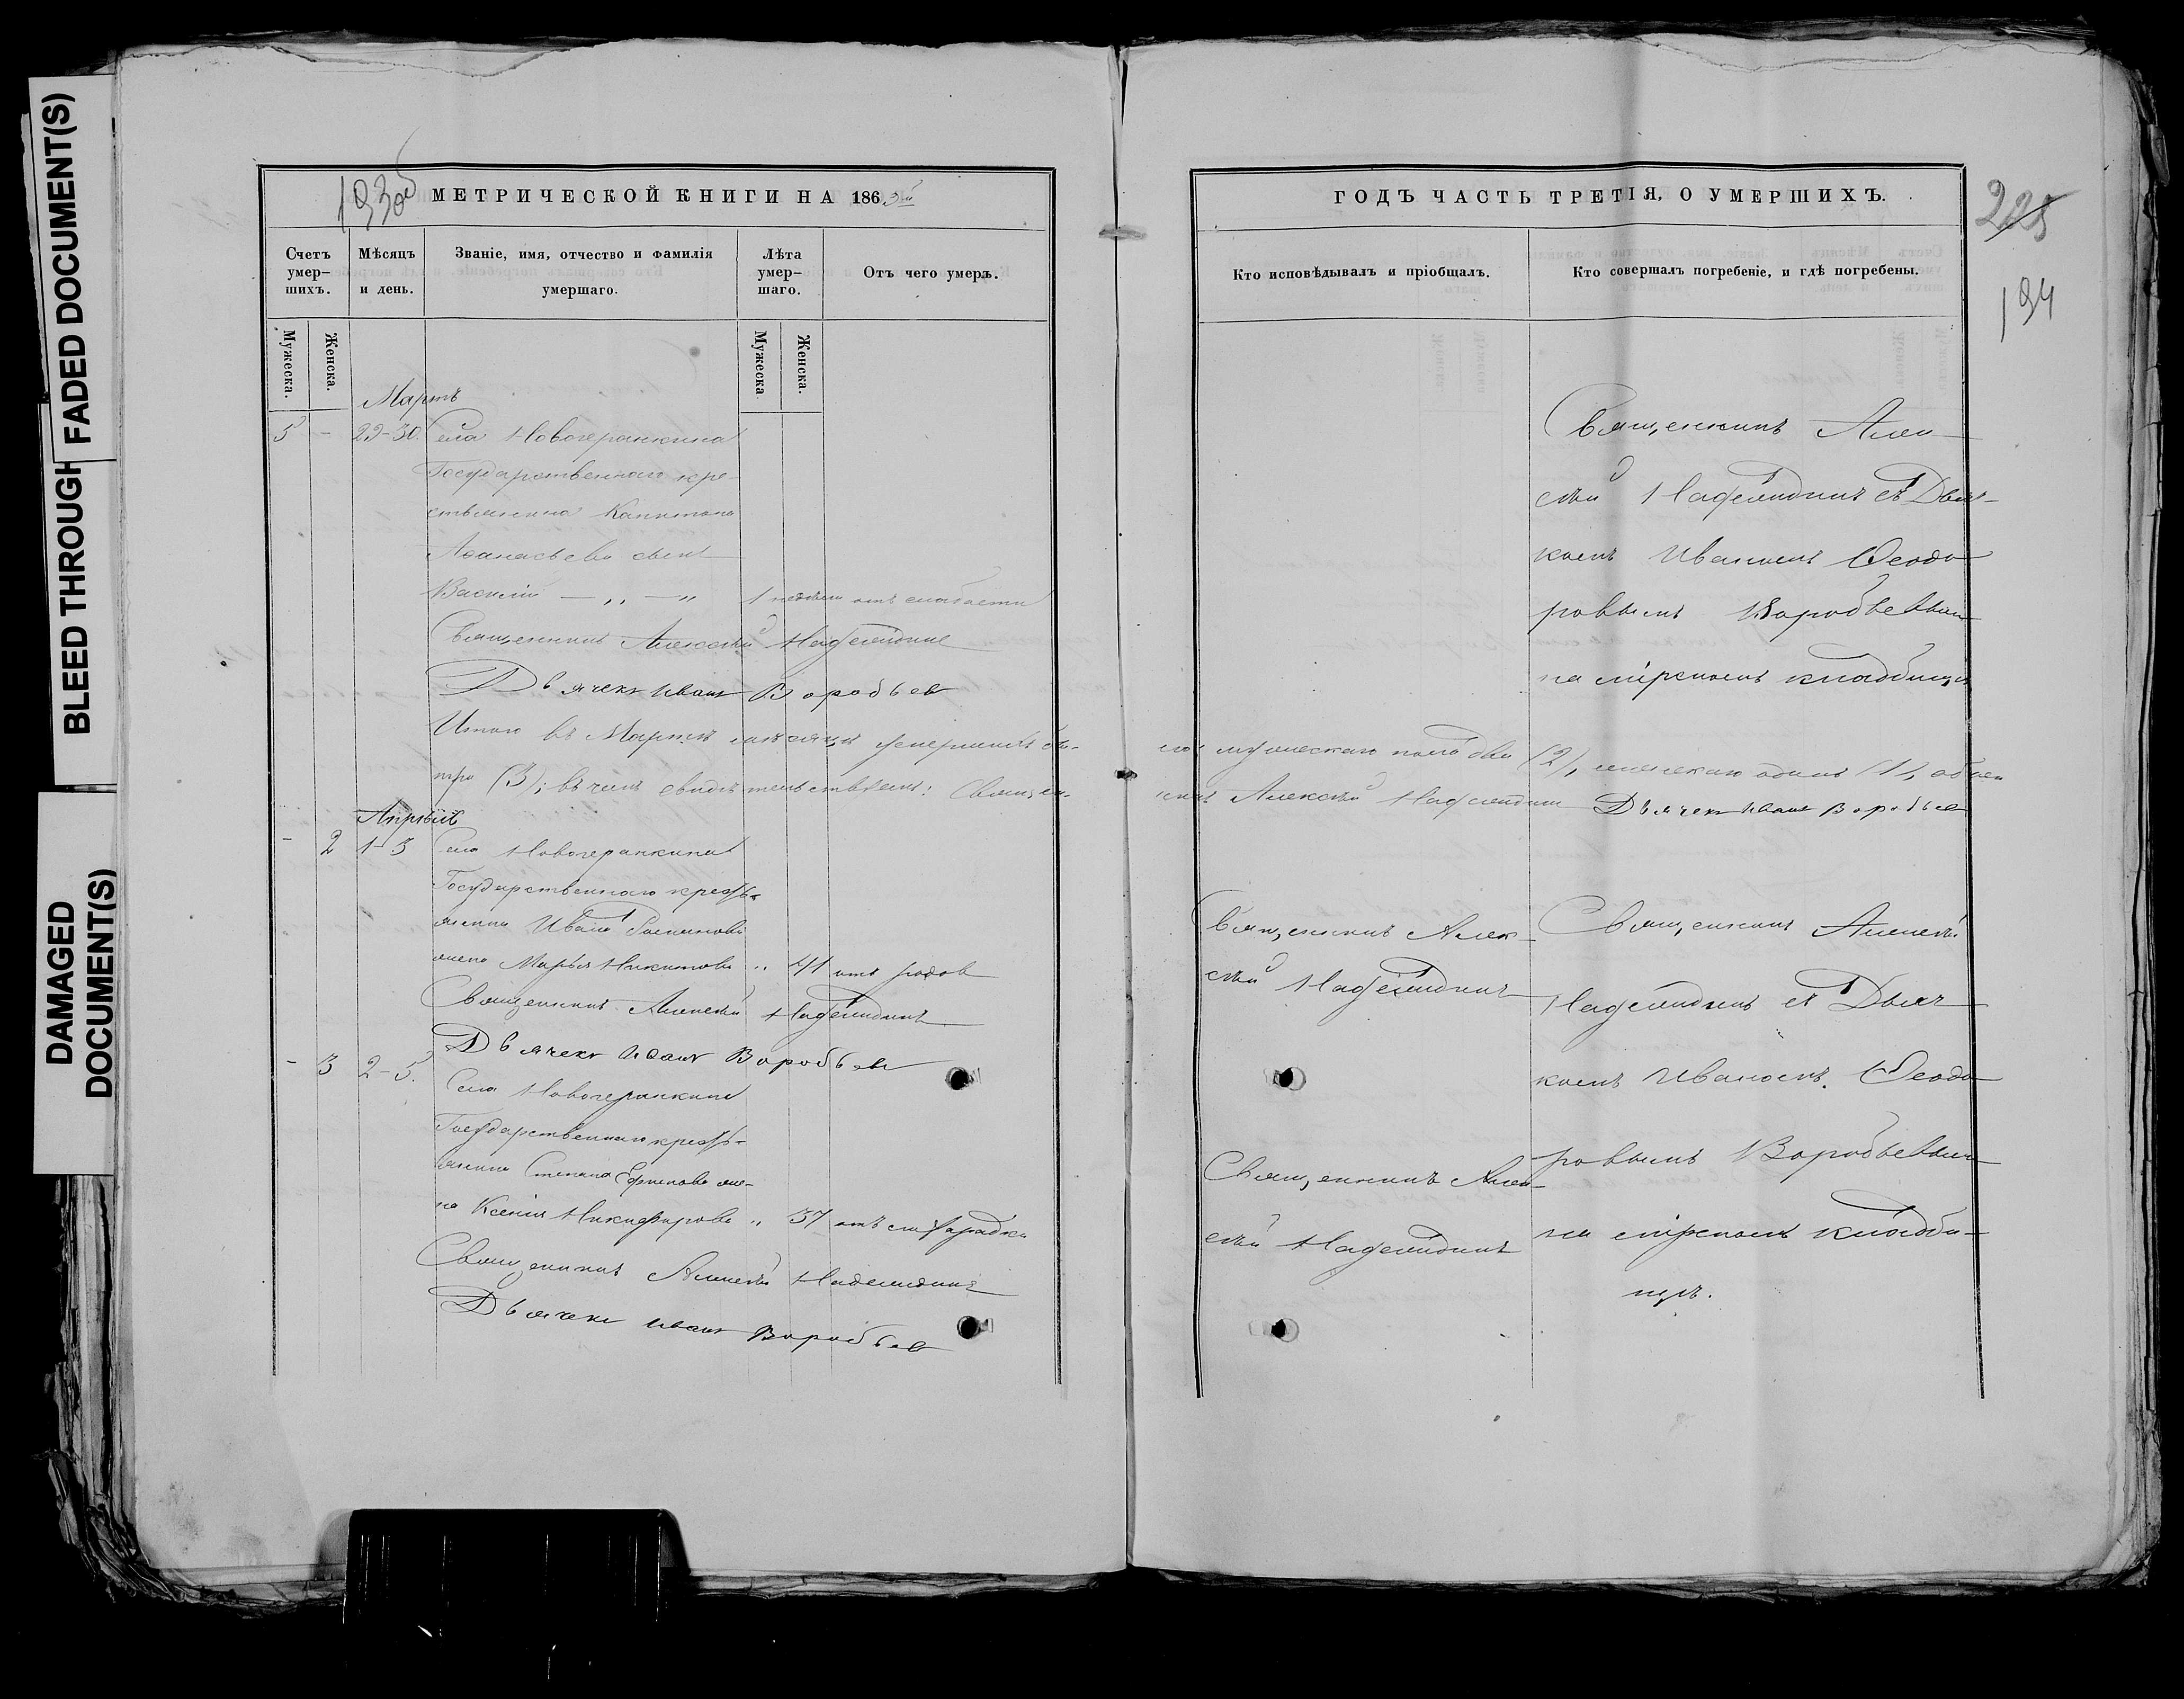 BLEED THROUGH
FADED DOCUMENT(S)
DAMAGED
DOCUMENT(S)
193об
МЕТРИЧЕСКОЙ КНИГИ НА 186
Счетъ умер-
шихъ.
Мѣсяцъ
и день.
Званіе, имя, отчество и фамилія
умершаго.
Лѣта
умер-
шаго.
Отъ чего умеръ.
Мужеска.
Женска.
Мужеска
Женска.
Мартъ
5 - 29-30. Села Новогеранкина
Государственнаго кре-
стьянина Капитона
Аѳанасьева сынъ
Василій — „ — „ 1 недели отъ слабости
Священникъ Алексѣй
Дьячекъ Иванъ Воробьев
Итого въ Мартѣ месяцѣ умершихъ бы-
три (3); въ чемъ свидѣтельствуемъ: Священ-
Апрѣль
- 2 1-3 Села Новогеранкина
Государственнаго кресть-
янина Ивана
жена Марья Никитова „ 41 отъ родов
Священникъ Алексѣй
Дьячекъ Иванъ Воробьев
- 3 2-5. Села Новогеранкина
Государственнаго кресть-
янина Степана Ефимова же-
на Ксенія Никифорова „ 37 отъ
Священникъ Алексѣй
Дьячекъ Иванъ Воробьев
ГОДЪ ЧАСТЬ ТРЕТІЯ, О УМЕРШИХЪ.
225
194
Кто исповѣдывалъ и пріобщалъ.
Кто совершалъ погребеніе, и гдѣ погребены.
Священникъ Алек-
сѣй съ Дьяч-
комъ Иваномъ Ѳеодо-
ровымъ Воробьевым
на мірскомъ кладбищѣ
мужескаго пола два (2), женскаго одинъ (1), обоего
никъ Алексѣй Дьячекъ Иванъ Воробьев
Священникъ Алек-
сѣй
Священникъ Алексѣй
съ Дьяч-
комъ Иваномъ Ѳеодо-
ровымъ Воробьевым
на мірскомъ кладби-
щѣ.
Священникъ Алек-
сѣй